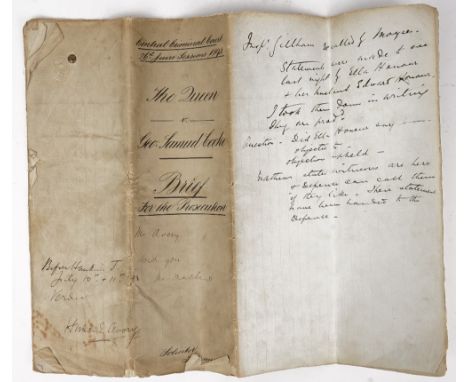 Central Criminal Court
26th June Sessions 1893
The Queen
v.
Geo. Samuel Cooke
Brief
For the Prosecution
Mr Avory
and you
Before Hawkins J.
July 10th + 11th
Verdict
Horace E Avory
Solicitor
Insp. Gillham called by Mayer
Statements were made to me
last night by Ella Honour
& her husband Edward Honour.
I took them down in writing
They are prod?
Question - Did Ella Honour say
objected to
objection upheld -
Mathews states witnesses are here
& Defence can call them
if they like - These statements
have been handed to the
defence -